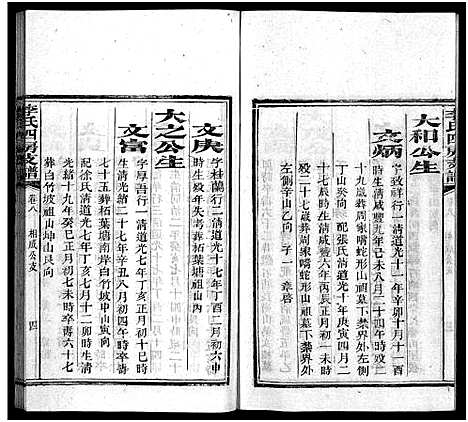 李氏四房支譜
大和公生
文炳
字致祥行一清道光十一年辛丑十月十一
時生清咸豐九年己未八月二十四時歿二
十九歲葬周家嘴蛇形山祖墓下禁界外
丁山癸向 配張氏清道光十年庚寅四月二
十七辰時生清咸豐六年丙辰正月初一時
歿二十七歲葬周家嘴蛇形山祖墓下禁界外左
左側辛山乙向 子一 章啓
文庚
字桂蘭行二清道光十七年丁酉二月初六申
時生歿年失考葬柘葉塘祖山內
大之公生
文富
字厚吾行一清道光七年丁亥正月初十巳時
生清光緒二十七年辛丑八月初四午時卒壽
七十五葬柘葉塘南岸白竹坡申山寅向
配徐氏清道光七年丁亥七月十二卯時生清
光緒十九年癸巳正月初七未時卒壽六十七
葬白竹坡祖山坤山艮向
李氏四房支譜
卷八
相成公支
四